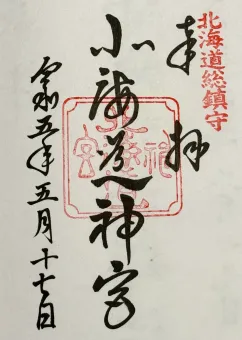 北海道総鎮守
奉拝
北海道神宮
令和五年五月十七日